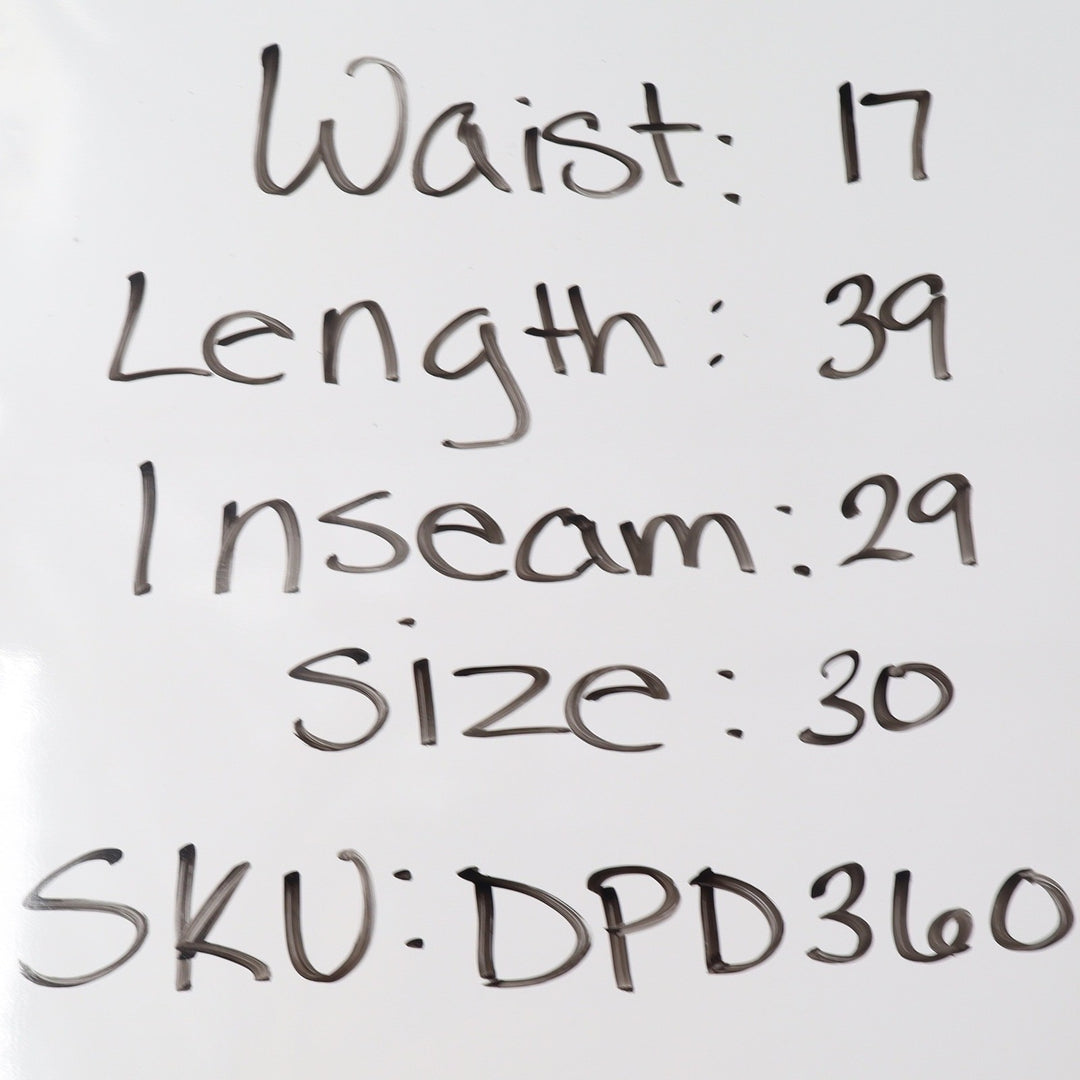 Waist: 17
Length: 39
Inseam: 29
Size: 30
SKU: DPD360